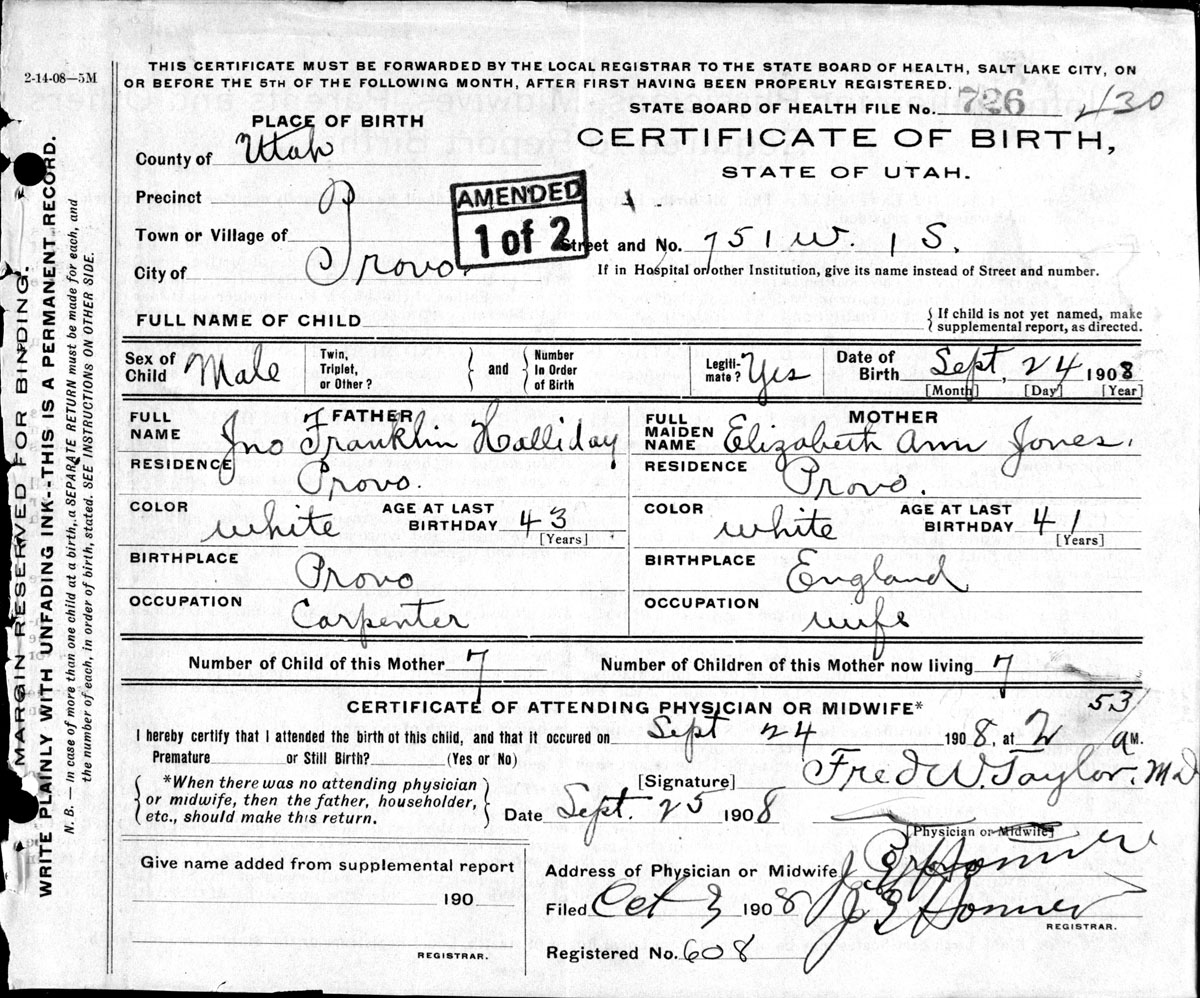 2-14-08—5M
THIS CERTIFICATE MUST BE FORWARDED BY THE LOCAL REGISTRAR TO THE STATE BOARD OF HEALTH, SALT LAKE CITY, ON
OR BEFORE THE 5TH OF THE FOLLOWING MONTH, AFTER FIRST HAVING BEEN PROPERLY REGISTERED.
STATE BOARD OF HEALTH FILE No. 726 430
PLACE OF BIRTH
CERTIFICATE OF BIRTH,
STATE OF UTAH.
County of Utah
Precinct
AMENDED
1 of 2
Town or Village of
Street and No. 751 W. 1 S.
City of Provo.
If in Hospital or other Institution, give its name instead of Street and number.
FULL NAME OF CHILD
{ If child is not yet named, make
supplemental report, as directed.
Sex of Child Male
Twin, Triplet, or Other?
and
Number In Order of Birth
Legiti-mate? Yes
Date of Birth Sept, 24 1908
[Month] [Day] [Year]
FATHER
FULL NAME Jno Franklin Halliday
MOTHER
FULL MAIDEN NAME Elizabeth Ann Jones.
RESIDENCE Provo.
RESIDENCE Provo.
COLOR white AGE AT LAST BIRTHDAY 43 [Years]
COLOR white AGE AT LAST BIRTHDAY 41 [Years]
BIRTHPLACE Provo
BIRTHPLACE England
OCCUPATION Carpenter
OCCUPATION wife
Number of Child of this Mother 7 Number of Children of this Mother now living 7
CERTIFICATE OF ATTENDING PHYSICIAN OR MIDWIFE* 53
I hereby certify that I attended the birth of this child, and that it occured on Sept 24 1908, at 2 AM.
Premature or Still Birth? (Yes or No)
[Signature] Fred W. Taylor. MD
*When there was no attending physician
or midwife, then the father, householder,
etc., should make this return.
Date Sept. 25 1908
[Physician or Midwife]
Give name added from supplemental report
190
REGISTRAR.
Address of Physician or Midwife
Filed Oct 3 1908
REGISTRAR.
Registered No. 608
MARGIN RESERVED FOR BINDING.
WRITE PLAINLY WITH UNFADING INK--THIS IS A PERMANENT RECORD.
N. B. — In case of more than one child at a birth, a SEPARATE RETURN must be made for each, and
the number of each, in order of birth, stated. SEE INSTRUCTIONS ON OTHER SIDE.